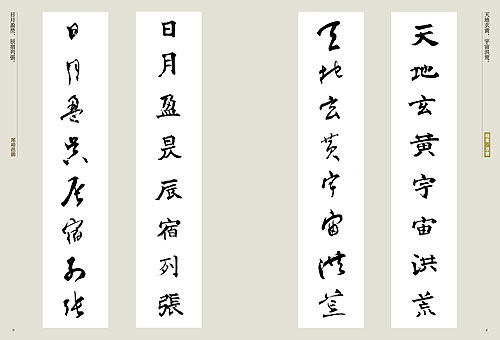 天地玄黄、宇宙洪荒。
天地玄黄宇宙洪荒
天地玄黄宇宙洪荒
日月盈昃辰宿列張
日月盈昃辰宿列張
日月盈昃、辰宿列張。